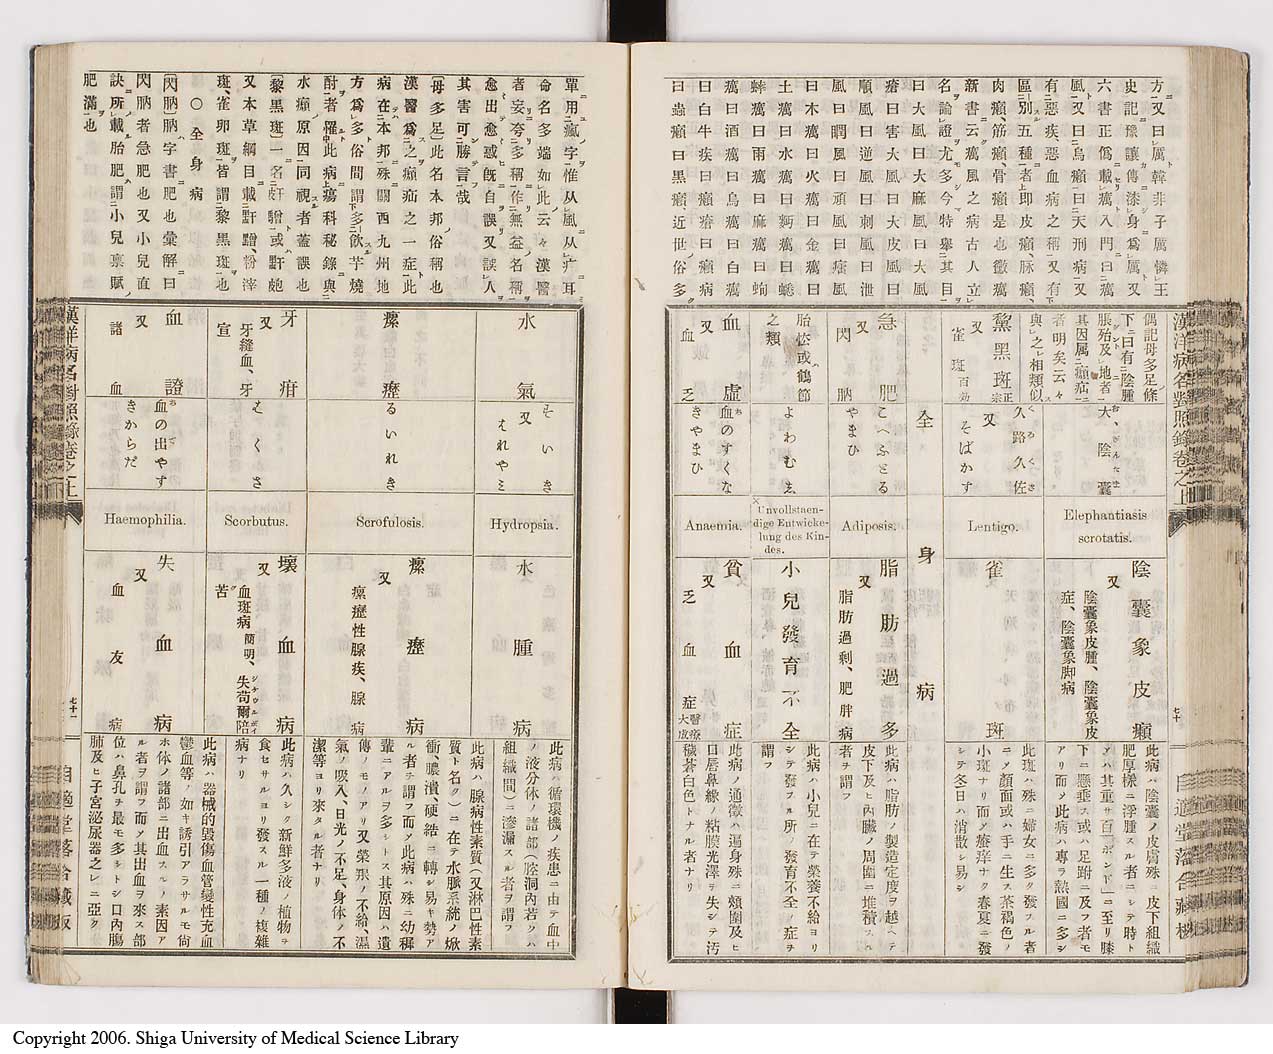 方ニ又曰厲韓非子厲憐王
史記豫讓傳漆身爲厲又
六書正僞載癘入門曰癘
風又曰烏癩曰天刑病又
有惡疾惡血病之稱又有下
區別五種者上即皮癩、脉癩、
肉癩、筋癩、骨癩是也徽癘
新書云癘風之病古人立
名論證尤多今特擧其目
曰大風曰大麻風曰大風
瘡曰害大風曰大皮風曰
順風曰逆風曰刺風曰泄
風曰瞤風曰頑風曰痓風
曰木癘曰火癘曰金癘曰
土癘曰水癘曰蚵癘曰蟋
蟀癘曰雨癘曰麻癘曰蚼
癘曰酒癘曰烏癘曰白癘
曰白牛疾曰癩瘡曰癩病
曰蟲癩曰黑癩近世俗多
漢洋病名對照錄卷之上
偶記母多足條
下ニ曰有ニ陰腫
脹殆及地者
其因属ニ癩疝ニ
者明矣云々
大陰嚢
Elephantiasis
scrotatis.
陰嚢象皮癩
又
陰嚢象皮腫、陰嚢象皮
症、陰嚢象脚病
此病ハ陰嚢ノ皮膚殊ニ皮下組織
肥厚樣ニ浮腫スル者ニシテ時ト
メハ其重サ百「ポンド」ニ至リ膝
下ニ懸垂ス或ハ足跗ニ及フ者モ
アリ而メ此病ハ專ラ熱國ニ多シ
與レ之相類似ス
黧黑斑 正宗
又
雀斑 百効
久路久佐
又
そばかす
Lentigo.
雀斑
此斑ハ殊ニ婦女ニ多ク發スル者
ニメ顏面或ハ手ニ生ス茶褐色ノ
小斑ナリ而メ痒痒ナク春夏ニ發
シテ冬日ハ消散シ易シ
全身病
急肥
又
閃肭
こへふとる
やまひ
Adiposis.
脂肪過多
又
脂肪過剰、肥胖病
此病ハ脂肪ノ製造定度ヲ越ヘテ
皮下及ヒ内臟ノ周圍ニ堆積スル
者ヲ謂フ
胎怯或ハ鶴節
之類
よわむま
Unvollstaen-
dige Entwicke-
lung des Kin-
des.
小兒發育不全
此病ハ小兒ニ在テ榮養不給ヨリ
シテ發スル所ノ發育不全ノ症ヲ
謂フ
血虛
又
血乏
血のすくな
きやまひ
Anaemia.
貧血症
又
乏血症 醫療大成
此病ノ通徴ハ遍身殊ニ頰圍及ヒ
口唇鼻緣ノ粘膜光澤ヲ失シテ汚
穢蒼白色トナル者ナリ
七十
自適堂落合藏板
單用瘋字惟从風从疒耳
命名多端如此云々漢醫
者妄夸多稱作無益名稱
愈出愈惑旣自誤又誤人
其害可勝言哉
(母多足)此名本邦俗稱也
漢醫爲之癩疝之一症此
病在本邦殊關西九州地
方爲多俗間謂下多飮芋燒
酎者罹中此病上瘍科秘錄與
水癩原因同視者蓋誤也
(黎黑斑)一名皯䵳或皯皰
又本草綱目載䵟䵳粉滓
斑、雀卵斑皆謂黎黑斑也
○全身病
(閃肭)肭字書肥也彙解曰
閃肭者急肥也又小兒直
訣所載胎肥謂小兒稟賦
肥滿也
水氣
そいき
又
はれやミ
Hydropsia.
水腫病
此病ハ循環機ノ疾患ニ由テ血中
ノ液分体ノ諸部(腔洞内若クハ
組織間)ニ滲漏スル者ヲ謂フ
瘰癧
るいれき
Scrofulosis.
瘰癧病
又
瘰癧性腺疾、腺病
此病ハ腺病性素質(又淋巴性素
質ト名ク)ニ在テ水脈系統ノ焮
衝、膿潰、硬結ニ轉シ易キ勢アル者ヲ謂フ而メ此病ハ殊ニ幼穉
輩ニアルヲ多シトス其原因ハ遺
傳ノモノアリ又榮養ノ不給、濕
氣ノ吸入、日光ノ不足、身体ノ不
潔等ヨリ來タル者ナリ
牙疳
又
牙縫血、牙
宣
はくさ
Scorbutus.
壞血病
又
血斑病 簡明、失苟爾陪
苦
此病ハ久シク新鮮多液ノ植物ヲ
食セサルヨリ發スル一種ノ複雜
病ナリ
血證
又
諸血
血の出やす
きからだ
Haemophilia.
失血病
又
血友病
此病ハ器械的毀傷血管變性充血
鬱血等ノ如キ誘引アラサルモ尚
ホ体ノ諸部ニ出血スルノ素因ア
ル者ヲ謂フ而メ其出血ヲ來ス部
位ハ鼻孔ヲ最モ多シトシ口内膓
肺及ヒ子宮泌尿器之レニ亞ク
漢洋病名對照錄卷之上
七十一
自適堂落合藏板
Copyright 2006. Shiga University of Medical Science Library